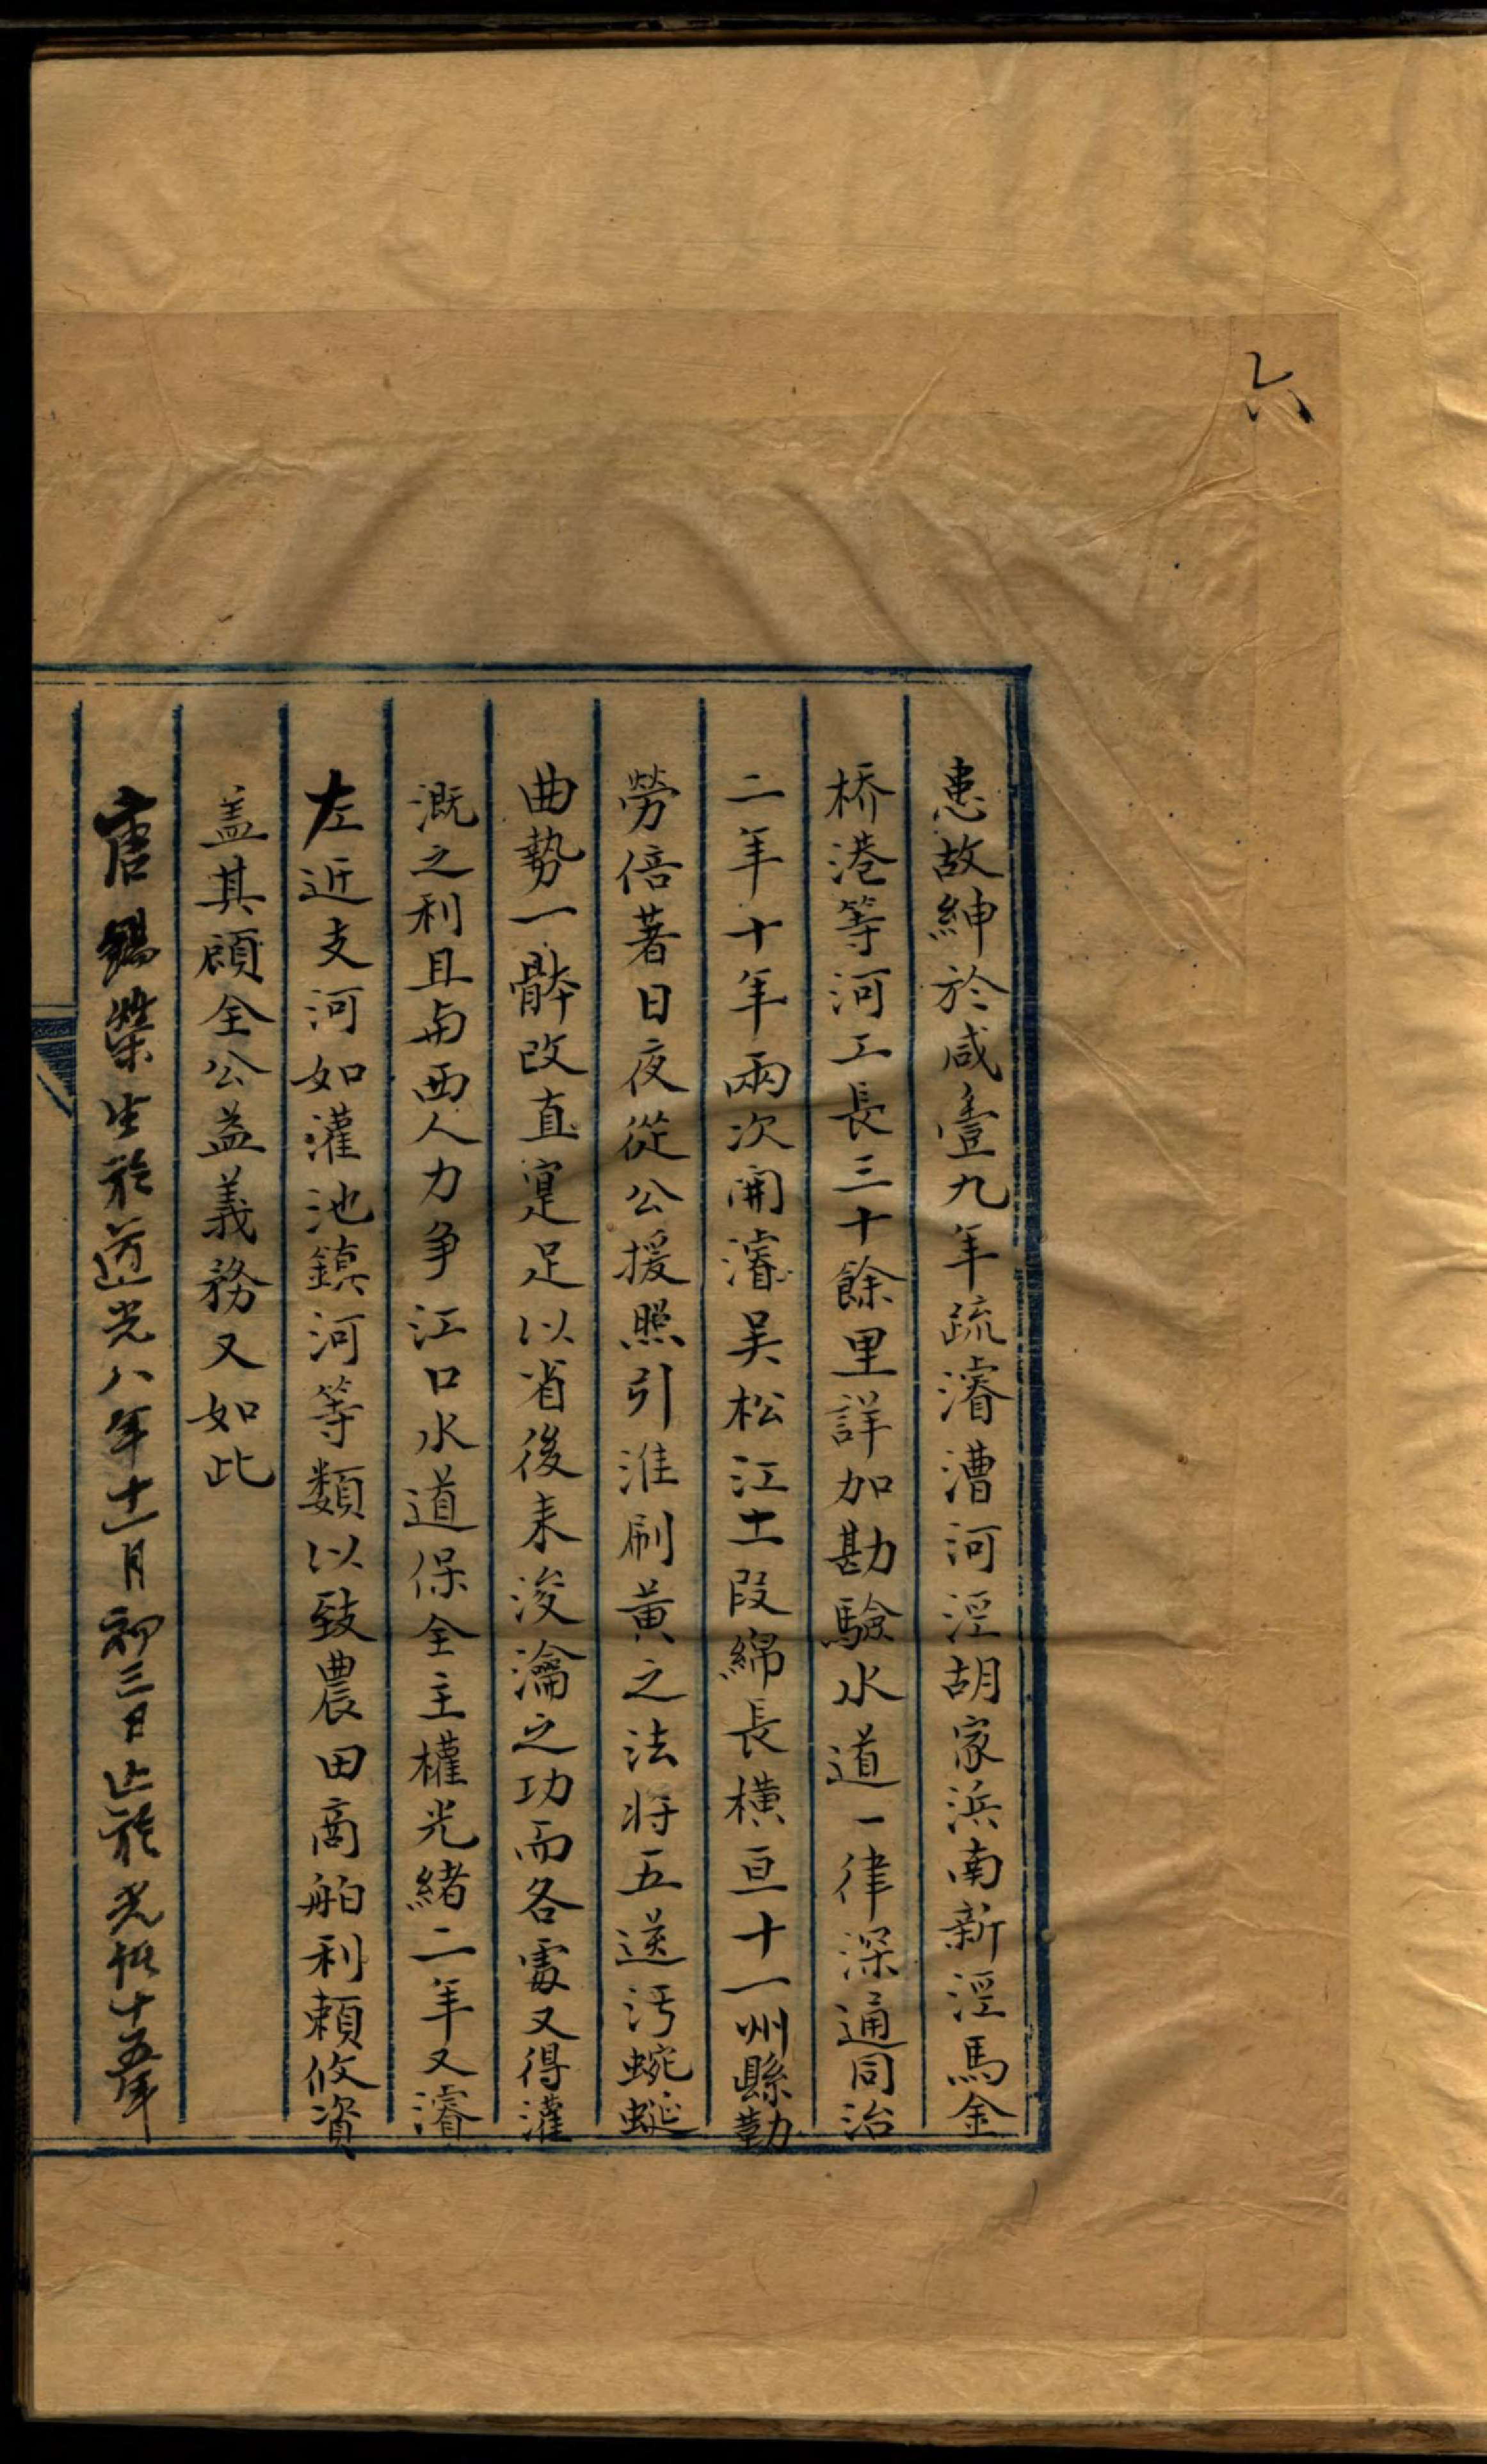 六
患故紳於咸壹九年疏濬漕河涇胡家浜南新涇馬金
桥港等河工長三十餘里詳加勘驗水道一律深通同治
二年十年兩次開濬吴松江土段綿長橫亘十一州縣勤
勞倍著日夜從公援照引淮刷黃之法將五送污蜿蜒
曲勢一骵改直寔足以省後来浚瀹之功而各處又得灌
溉之利且与西人力争江口水道保全主權光緒二年又濬
左近支河如灌池鎮河等類以致農田商舶利賴攸資
盖其顧全公益義務又如此
唐錫榮生於道光八年十一月初三日止於光緒十五年